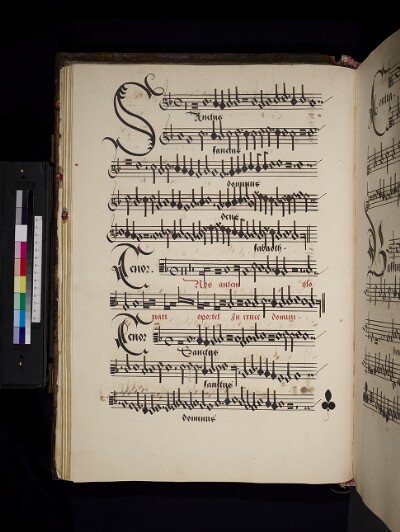 Sanctus
sanctus
dominus
deus
sabaoth.
Tenor.
Nos autem glo
riari oportet In cruce domini.
Tenor
Sanctus
sanctus
dominus